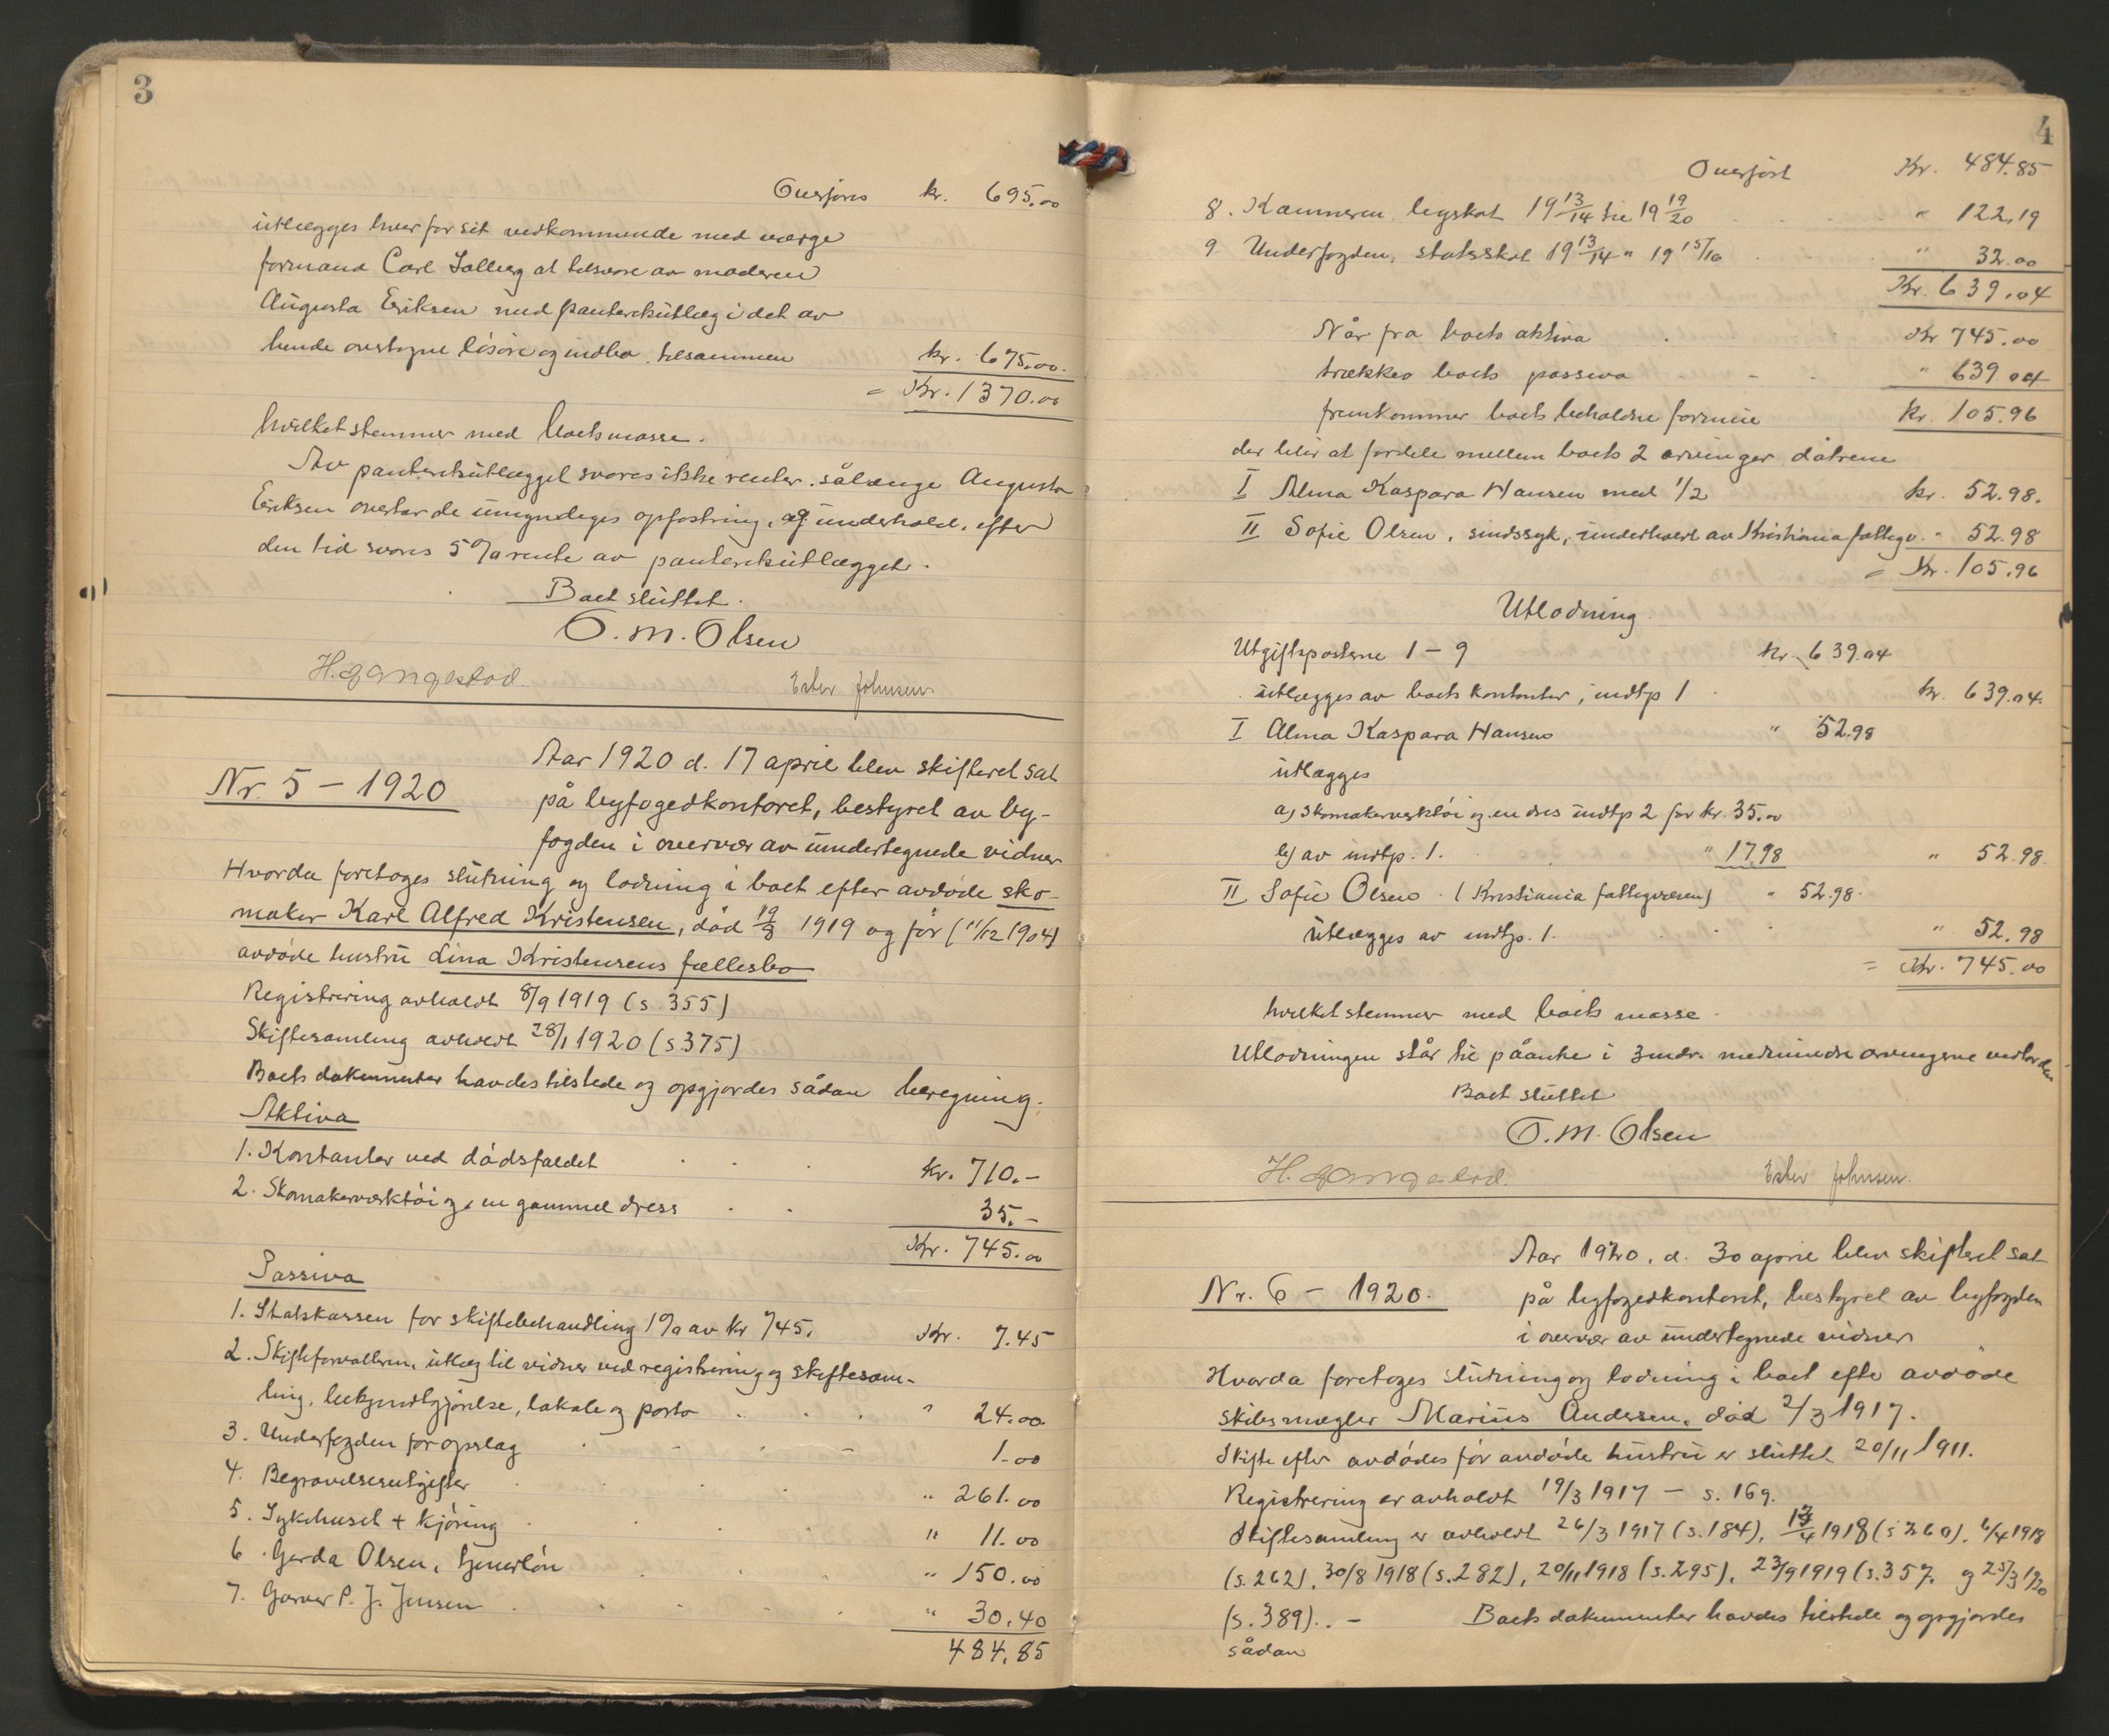 3
Overføres kr. 695.00
utlægges hver for sit vedkommende med værge
formand Carl Solberg at tilsvare av moderen
Augusta Eriksen med panteretsutlæg i det av
hende overtagne løsøre og indbo tilsammen kr. 675.00.
= Kr. 1370.00
hvilket stemmer med boets masse.
Av panteretsutlægget svares ikke renter sålænge Augusta
Eriksen overtar de umyndiges opfostring, og underhold, efter
den tid svares 5% rente av panteretsutlægget.
Boet sluttet.
O. M. Olsen
H. Gangestad. Ester Johnsen.
Nr. 5 – 1920
Aar 1920 d. 17 april blev skifteret sat
på byfogedkontoret, bestyret av by-
fogden i overvær av undertegnede vidner
Hvorda foretages slutning og lodning i boet efter avdøde sko-
maker Karl Alfred Kristensen, død 19/8 1919 og før (11/12 1904)
avdøde hustru Lina Kristensens fællesbo
Registrering avholdt 8/9 1919 (s. 355)
Skiftesamling avholdt 28/1 1920 (s 375)
Boets dokumenter havdes tilstede og opgjordes sådan beregning:
Aktiva
1. Kontanter ved dødsfaldet . . . kr. 710.–
2. Skomakerverktøi og en gammel dress . . 35.–
Kr. 745.00
Passiva
1. Statskassen for skiftebehandling 1% av kr 745. Kr. 7.45
2. Skifteforvalteren, utlæg til vidner ved registrering og skiftesam-
ling, bekjendtgjørelse, lokale og porto . . . " 24.00
3. Underfogden for opslag 1.00
4. Begravelsesutgifter " 261.00
5. Sykehuset + kjøring " 11.00
6. Gerda Olsen, tjenerløn " 150.00
7. Garver P. J. Jensen " 30.40
484.85
4
Overført Kr. 484.85
8. Kæmneren, byskat 19 13/14 til 19 19/20 " 122.19
9 Underfogden, statsskat 19 13/14 " 19 15/16 " 32.00
Kr. 639.04
Når fra boets aktiva . Kr 745.00
trækkes boets passiva " 639 04
fremkommer boets beholdne formue kr. 105.96
der blir at fordele mellem boets 2 arvinger døtrene
I Alma Kaspara Hansen med 1/2 kr. 52.98.
II Sofie Olsen, sindssyk, underholdt av Kristiania fattigv. " 52.98
= Kr. 105.96
Utlodning
Utgiftsposterne 1 – 9 Kr. 639.04
utlægges av boets kontanter, indtp 1 kr. 639.04.
I Alma Kaspara Hansen " 52.98
utlægges
a) skomakerverktøi og en dres indtp 2 for kr. 35.00
b) av indtp. 1. " 17.98 " 52.98.
II Sofie Olsen (Kristiania fattigvæsen) " 52.98.
utlægges av indtp. 1. " 52.98
= Kr. 745.00
hvilket stemmer med boets masse.
Utlodningen står til påanke i 3 mdr. medmindre arvingerne vedtar den
Boet sluttet
O. M. Olsen
H. Gangestad. Ester Johnsen.
Nr. 6 – 1920.
Aar 1920, d. 30 april blev skifteret sat
på byfogedkontoret, bestyret av byfogden
i overvær av undertegnede vidner
Hvorda foretages slutning og lodning i boet efter avdøde
skibsmægler Marius Andersen, død 2/3 1917.
Skifte efter avdødes før avdøde hustru er sluttet 20/11 1911.
Registrering er avholdt 19/3 1917 – s. 169.
Skiftesamling er avholdt 26/3 1917 (s. 184), 13/4 1918 (s 260), 6/4 1918
(s. 262), 30/8 1918 (s. 282), 20/11 1918 (s. 295), 23/9 1919 (s. 357. og 25/3 1920
(s. 389). . – Boets dokumenter havdes tilstede og opgjordes
sådan